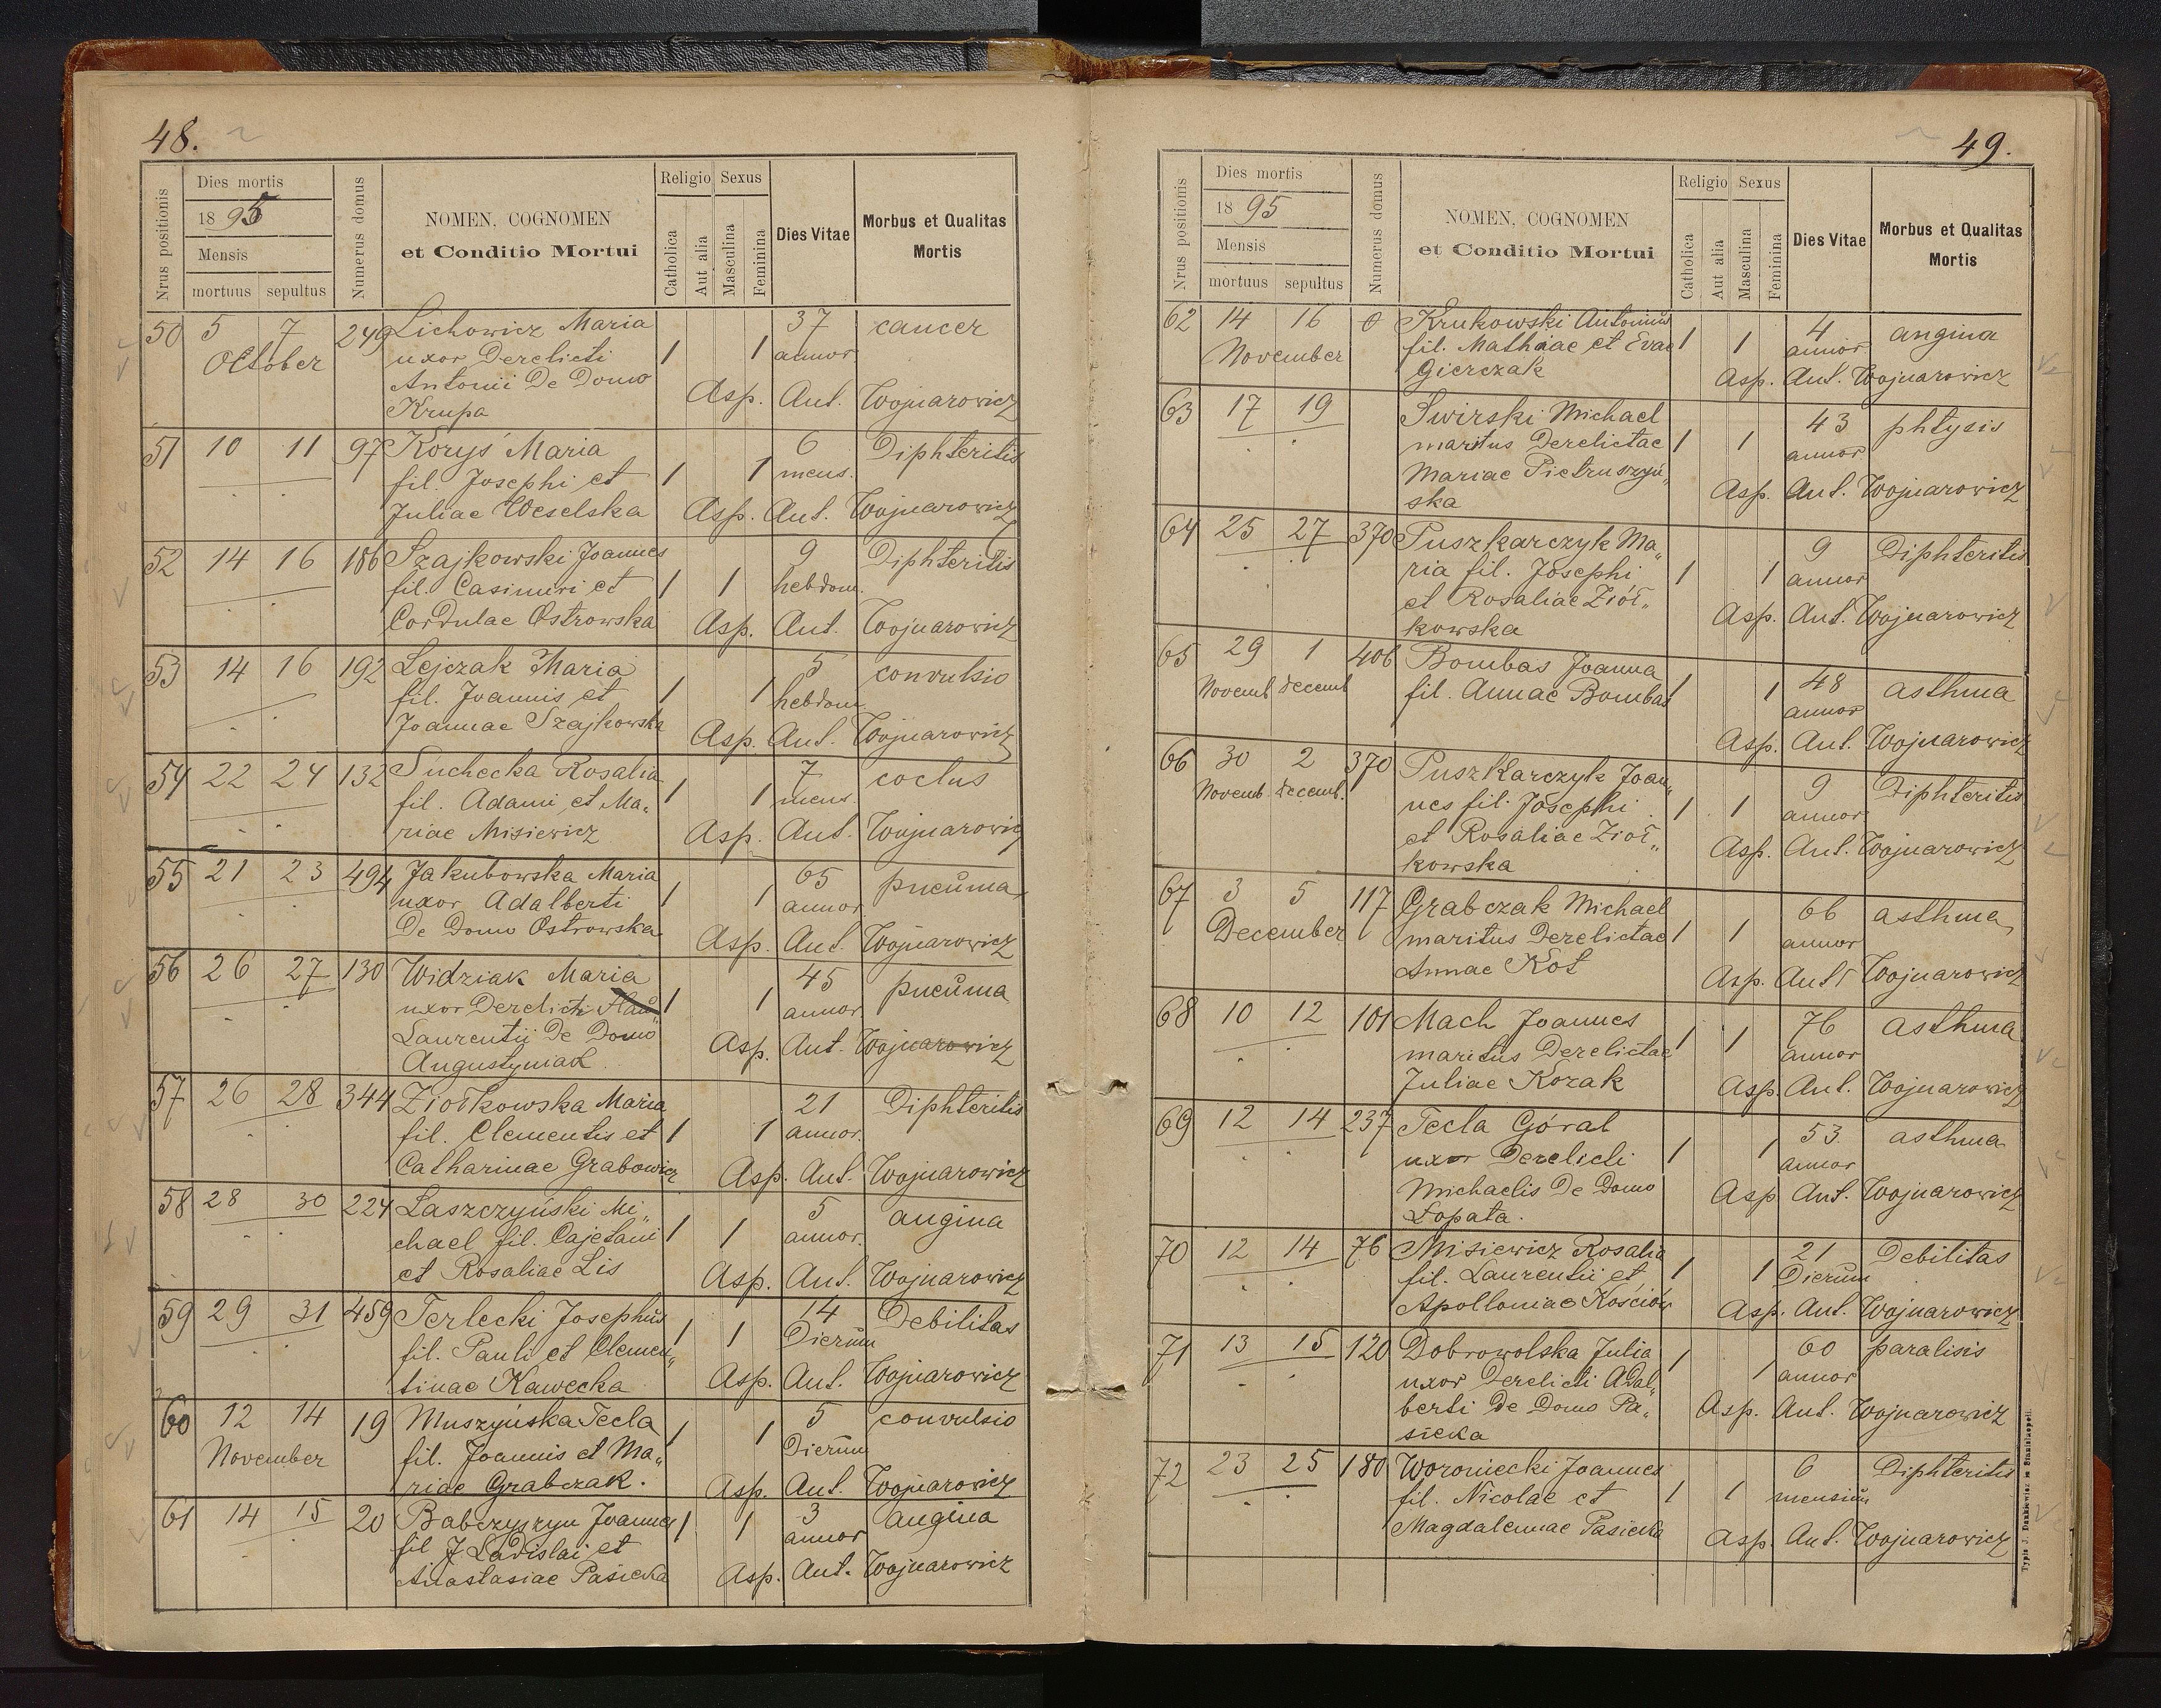 48.
Nrus positionis
Dies mortis
1895
Mensis
mortuus sepultus
Numerus domus
NOMEN, COGNOMEN
et Conditio Mortui
Religio
Catholica
Aut alia
Sexus
Masculina
Feminina
Dies Vitae
Morbus et Qualitas
Mortis
50 5 7 249 Lichowicz Maria 37 cancer
October uxor Derelicti 1 1 annor
Antonii De Domo Asp. Ant. Wojnarowicz
Krupa
51 10 11 97 Koryś Maria 6 Diphteritis
fil. Josephi et 1 1 mens.
Juliae Weselska Asp. Ant. Wojnarowicz
52 14 16 186 Szajkowski Joannes 9 Diphteritis
fil. Casimiri et 1 1 hebdom.
Cordulae Ostrowska Asp. Ant. Wojnarowicz
53 14 16 192 Lejczak Maria 5 convulsio
fil. Joannis et 1 1 hebdom.
Joannae Szajkowska Asp. Ant. Wojnarowicz
54 22 24 132 Suchecka Rosalia 7 coclus
fil. Adami et Ma„ 1 1 mens.
riae Misiewicz Asp. Ant. Wojnarowicz
55 21 23 494 Jakubowska Maria 65 pneuma
uxor Adalberti 1 1 annor
De Domo Ostrowska Asp. Ant. Wojnarowicz
56 26 27 130 Widziak Maria 45 pneuma
uxor Derelicti 1 1 annor
Laurentii De Domo Asp. Ant. Wojnarowicz
Augustyniak
57 26 28 344 Ziołkowska Maria 21 Diphteritis
fil. Clementis et 1 1 annor.
Catharinae Grabowicz Asp. Ant. Wojnarowicz
58 28 30 224 Laszczyński Mi„ 5 angina
chael fil. Cajetani 1 1 annor.
et Rosaliae Lis Asp. Ant. Wojnarowicz
59 29 31 459 Terlecki Josephus 14 Debilitas
fil. Pauli et Clemen„ 1 1 Dierum
tinae Kawecka Asp. Ant. Wojnarowicz
60 12 14 19 Muszyńska Tecla 5 convulsio
November fil. Joannis et Ma„ 1 1 Dierum
riae Grabczak. Asp. Ant. Wojnarowicz
61 14 15 20 Babczyszyn Joannes 1 1 3 angina
fil Ladislai et annor
Anastasiae Pasieka Asp. Ant. Wojnarowicz
49.
Nrus positionis
Dies mortis
1895
Mensis
mortuus sepultus
Numerus domus
NOMEN, COGNOMEN
et Conditio Mortui
Religio
Catholica
Aut alia
Sexus
Masculina
Feminina
Dies Vitae
Morbus et Qualitas
Mortis
62 14 16 0 Krukowski Antonius 4 angina
November fil. Mathiae et Evae 1 1 annor.
Gierczak Asp. Ant. Wojnarowicz
63 17 19 Swirski Michael 43 phtysis
maritus Derelictae 1 1 annor
Mariae Pietruszyń„ Asp. Ant. Wojnarowicz
ska
64 25 27 370 Puszkarczyk Ma„ 9 Diphteritis
ria fil. Josephi 1 1 annor
et Rosaliae Ziół„ Asp. Ant. Wojnarowicz
kowska
65 29 1 406 Bombas Joanna 48 asthma
Novemb. decemb. fil. Annae Bombas 1 1 annor
Asp. Ant. Wojnarowicz
66 30 2 370 Puszkarczyk Joan„ 9 Diphteritis
Novemb. decemb. nes fil. Josephi 1 1 annor
et Rosaliae Zioł„ Asp. Ant. Wojnarowicz
kowska
67 3 5 117 Grabczak Michael 66 asthma
December maritus Derelictae 1 1 annor
Annae Kot Asp. Ant Wojnarowicz
68 10 12 101 Mach Joannes 76 asthma
maritus Derelictae 1 1 annor
Juliae Kozak Asp. Ant. Wojnarowicz
69 12 14 237 Tecla Góral 53 asthma
uxor Derelicti 1 1 annor
Michaelis De Domo Asp Ant. Wojnarowicz
Łopata.
70 12 14 76 Misiewicz Rosalia 21 Debilitas
fil. Laurentii et 1 1 Dierum
Apolloniae Kościów Asp. Ant. Wojnarowicz
71 13 15 120 Dobrowolska Julia 60 paralisis
uxor Derelicti Adal„ 1 1 annor
berti De Domo Pa„ Asp. Ant. Wojnarowicz
sieka
72 23 25 180 Woroniecki Joannes 6 Diphteritis
fil. Nicolae et 1 1 mensium
Magdalennae Pasieka Asp. Ant. Wojnarowicz
Typis J. Dankiewicz in Stanislaopoli.